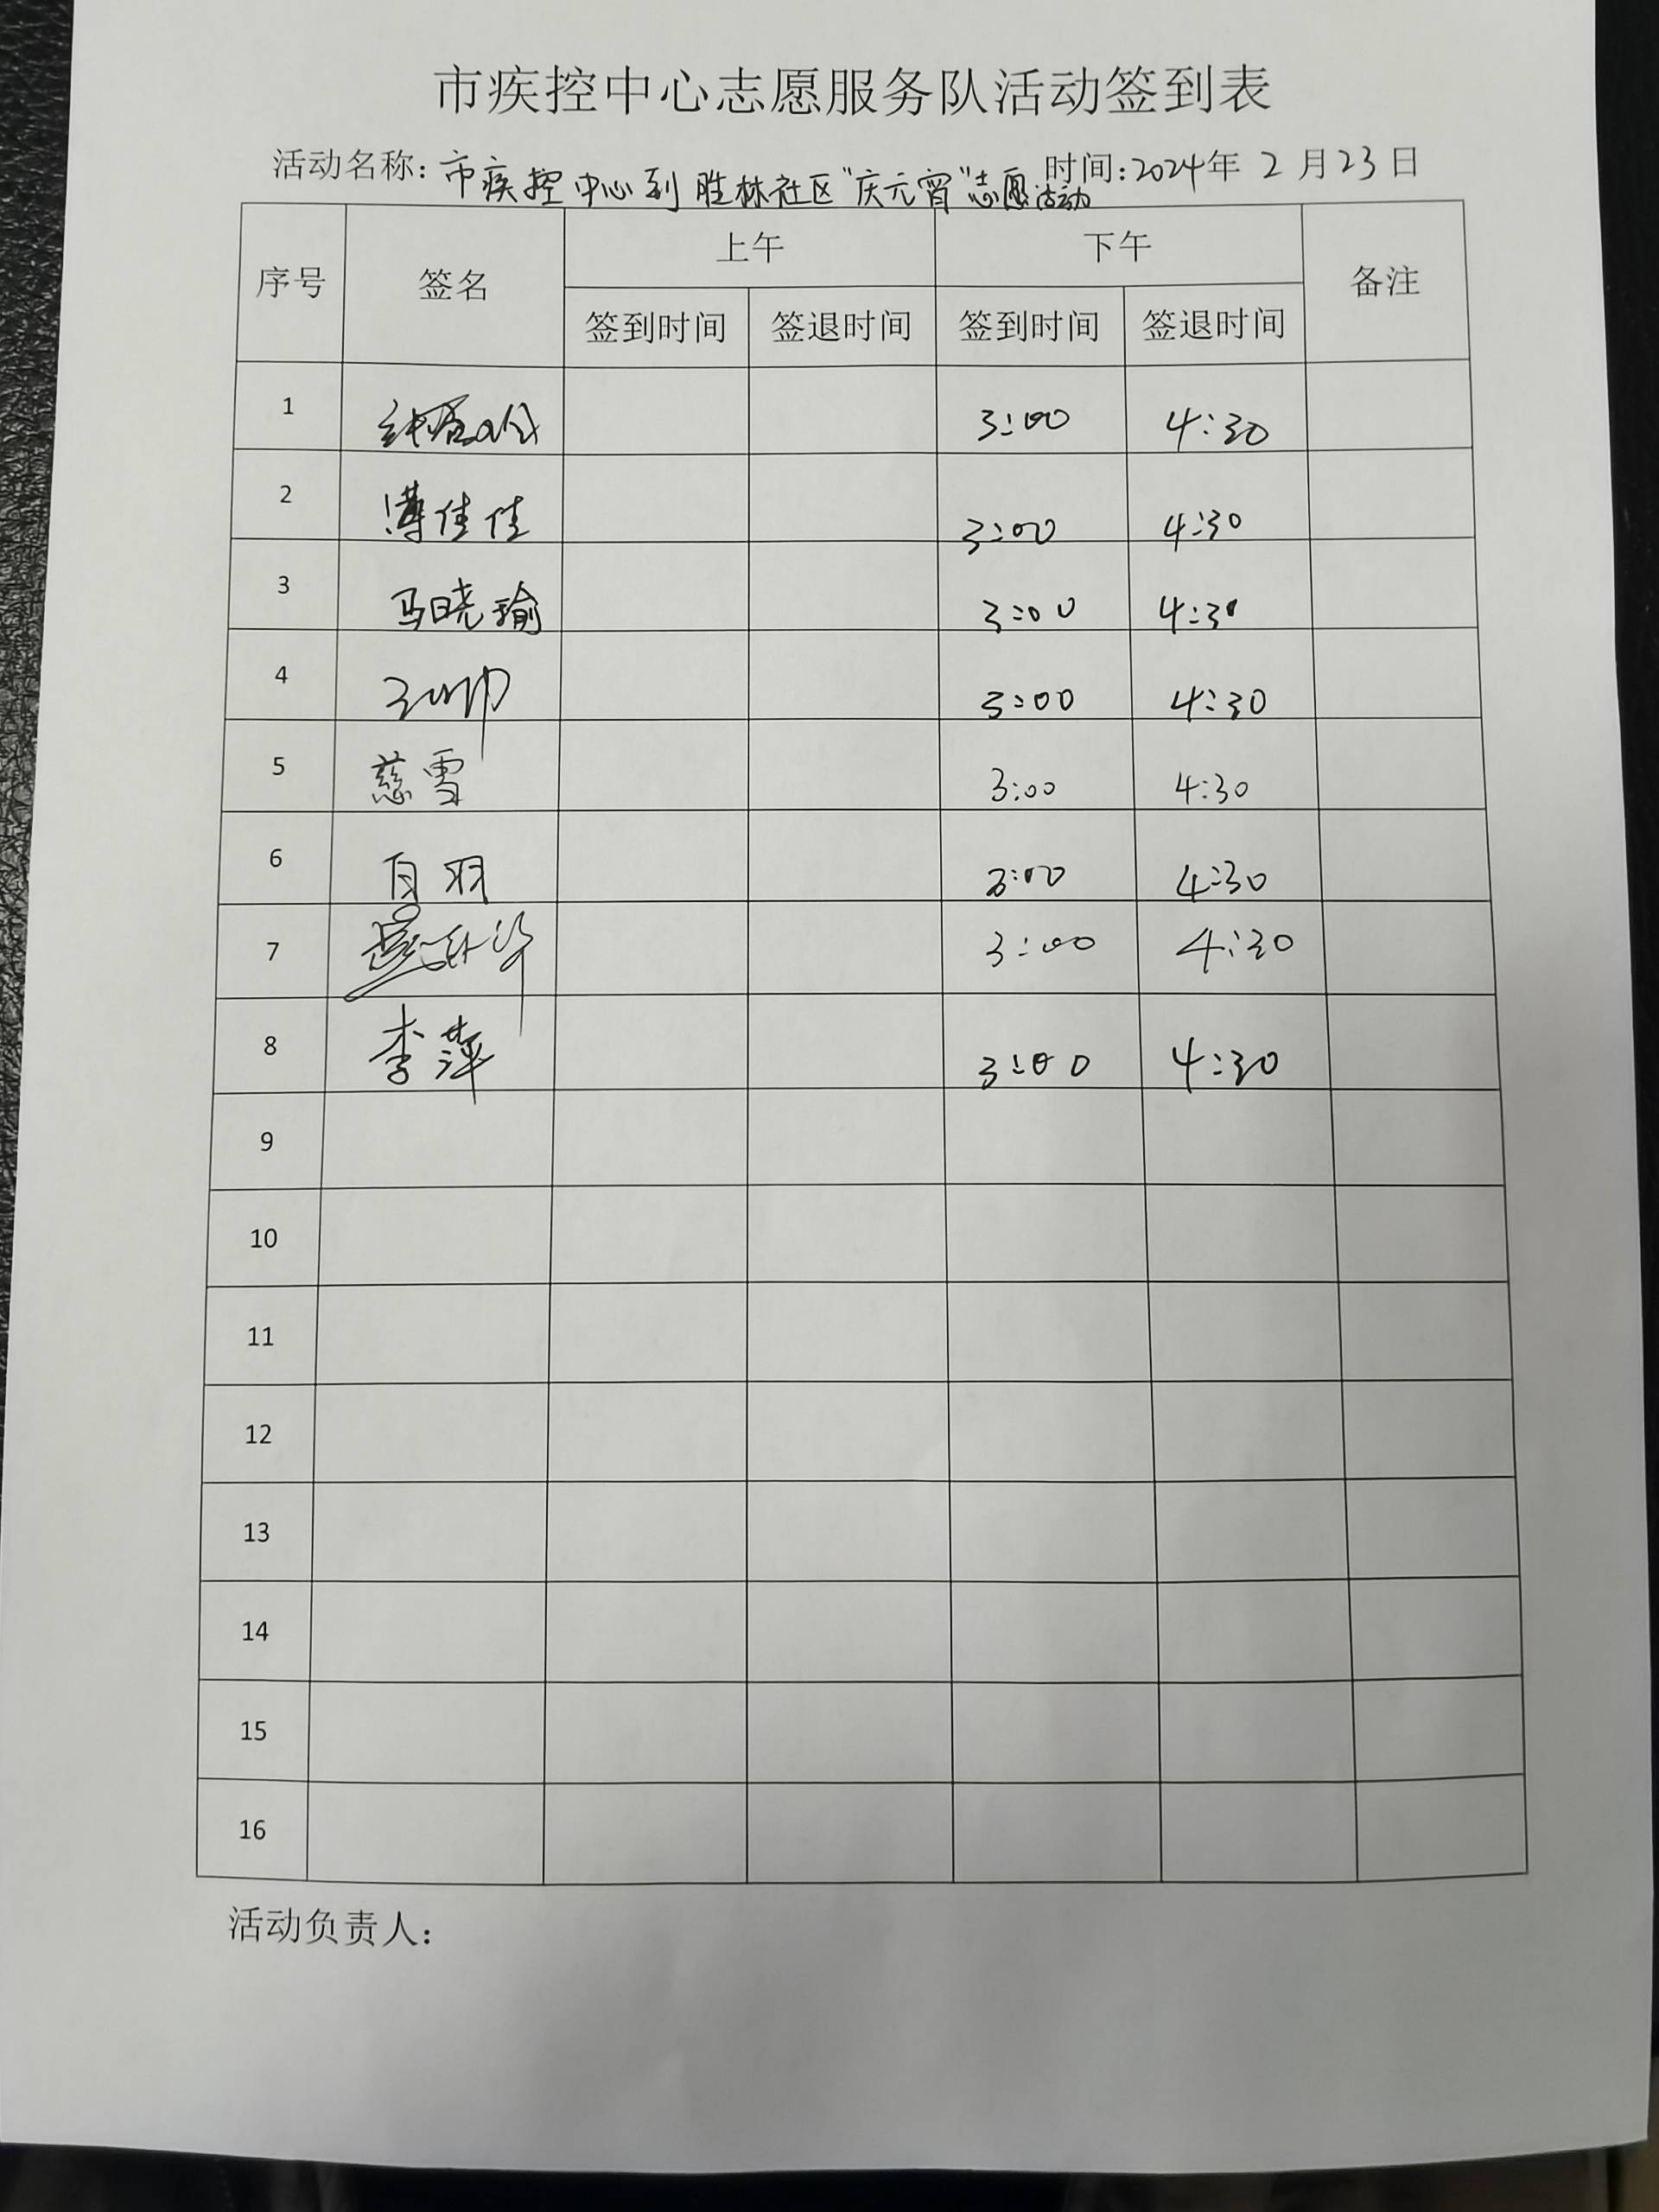 市疾控中心志愿服务队活动签到表
活动名称:市疾控中心到胜林社区"庆元宵"志愿活动 时间:2024年 2 月 23 日
序号 签名 上午 下午 备注
签到时间 签退时间 签到时间 签退时间
1 3:00 4:30
2 薄佳佳 3:00 4:30
3 马晓瑜 3:00 4:30
4 3:00 4:30
5 慈雪 3:00 4:30
6 白羽 3:00 4:30
7 3:00 4:30
8 李萍 3:00 4:30
9
10
11
12
13
14
15
16
活动负责人: